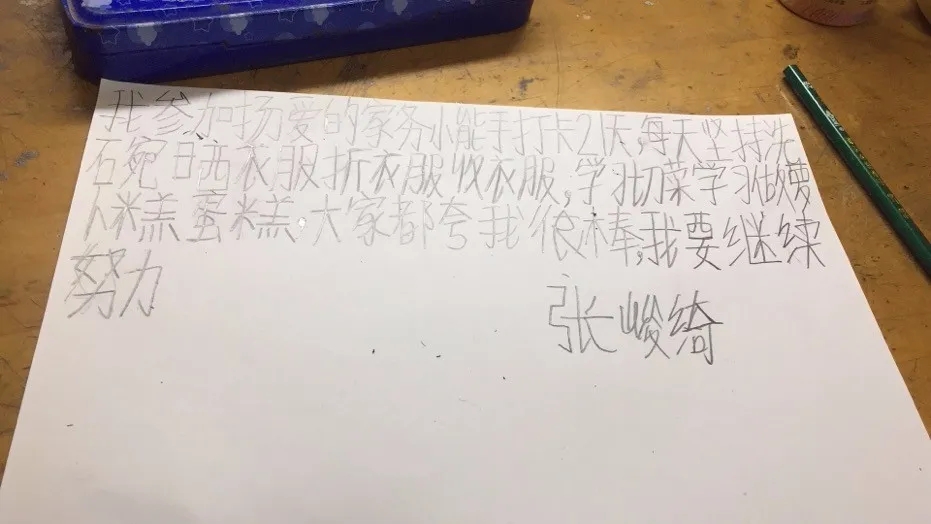 我参加扬爱的家务小能手打卡21天,每天坚持洗
碗晒衣服折衣服收衣服,学习切菜学习做萝
卜糕蛋糕,大家都夸我很棒,我要继续
努力
张峻绮